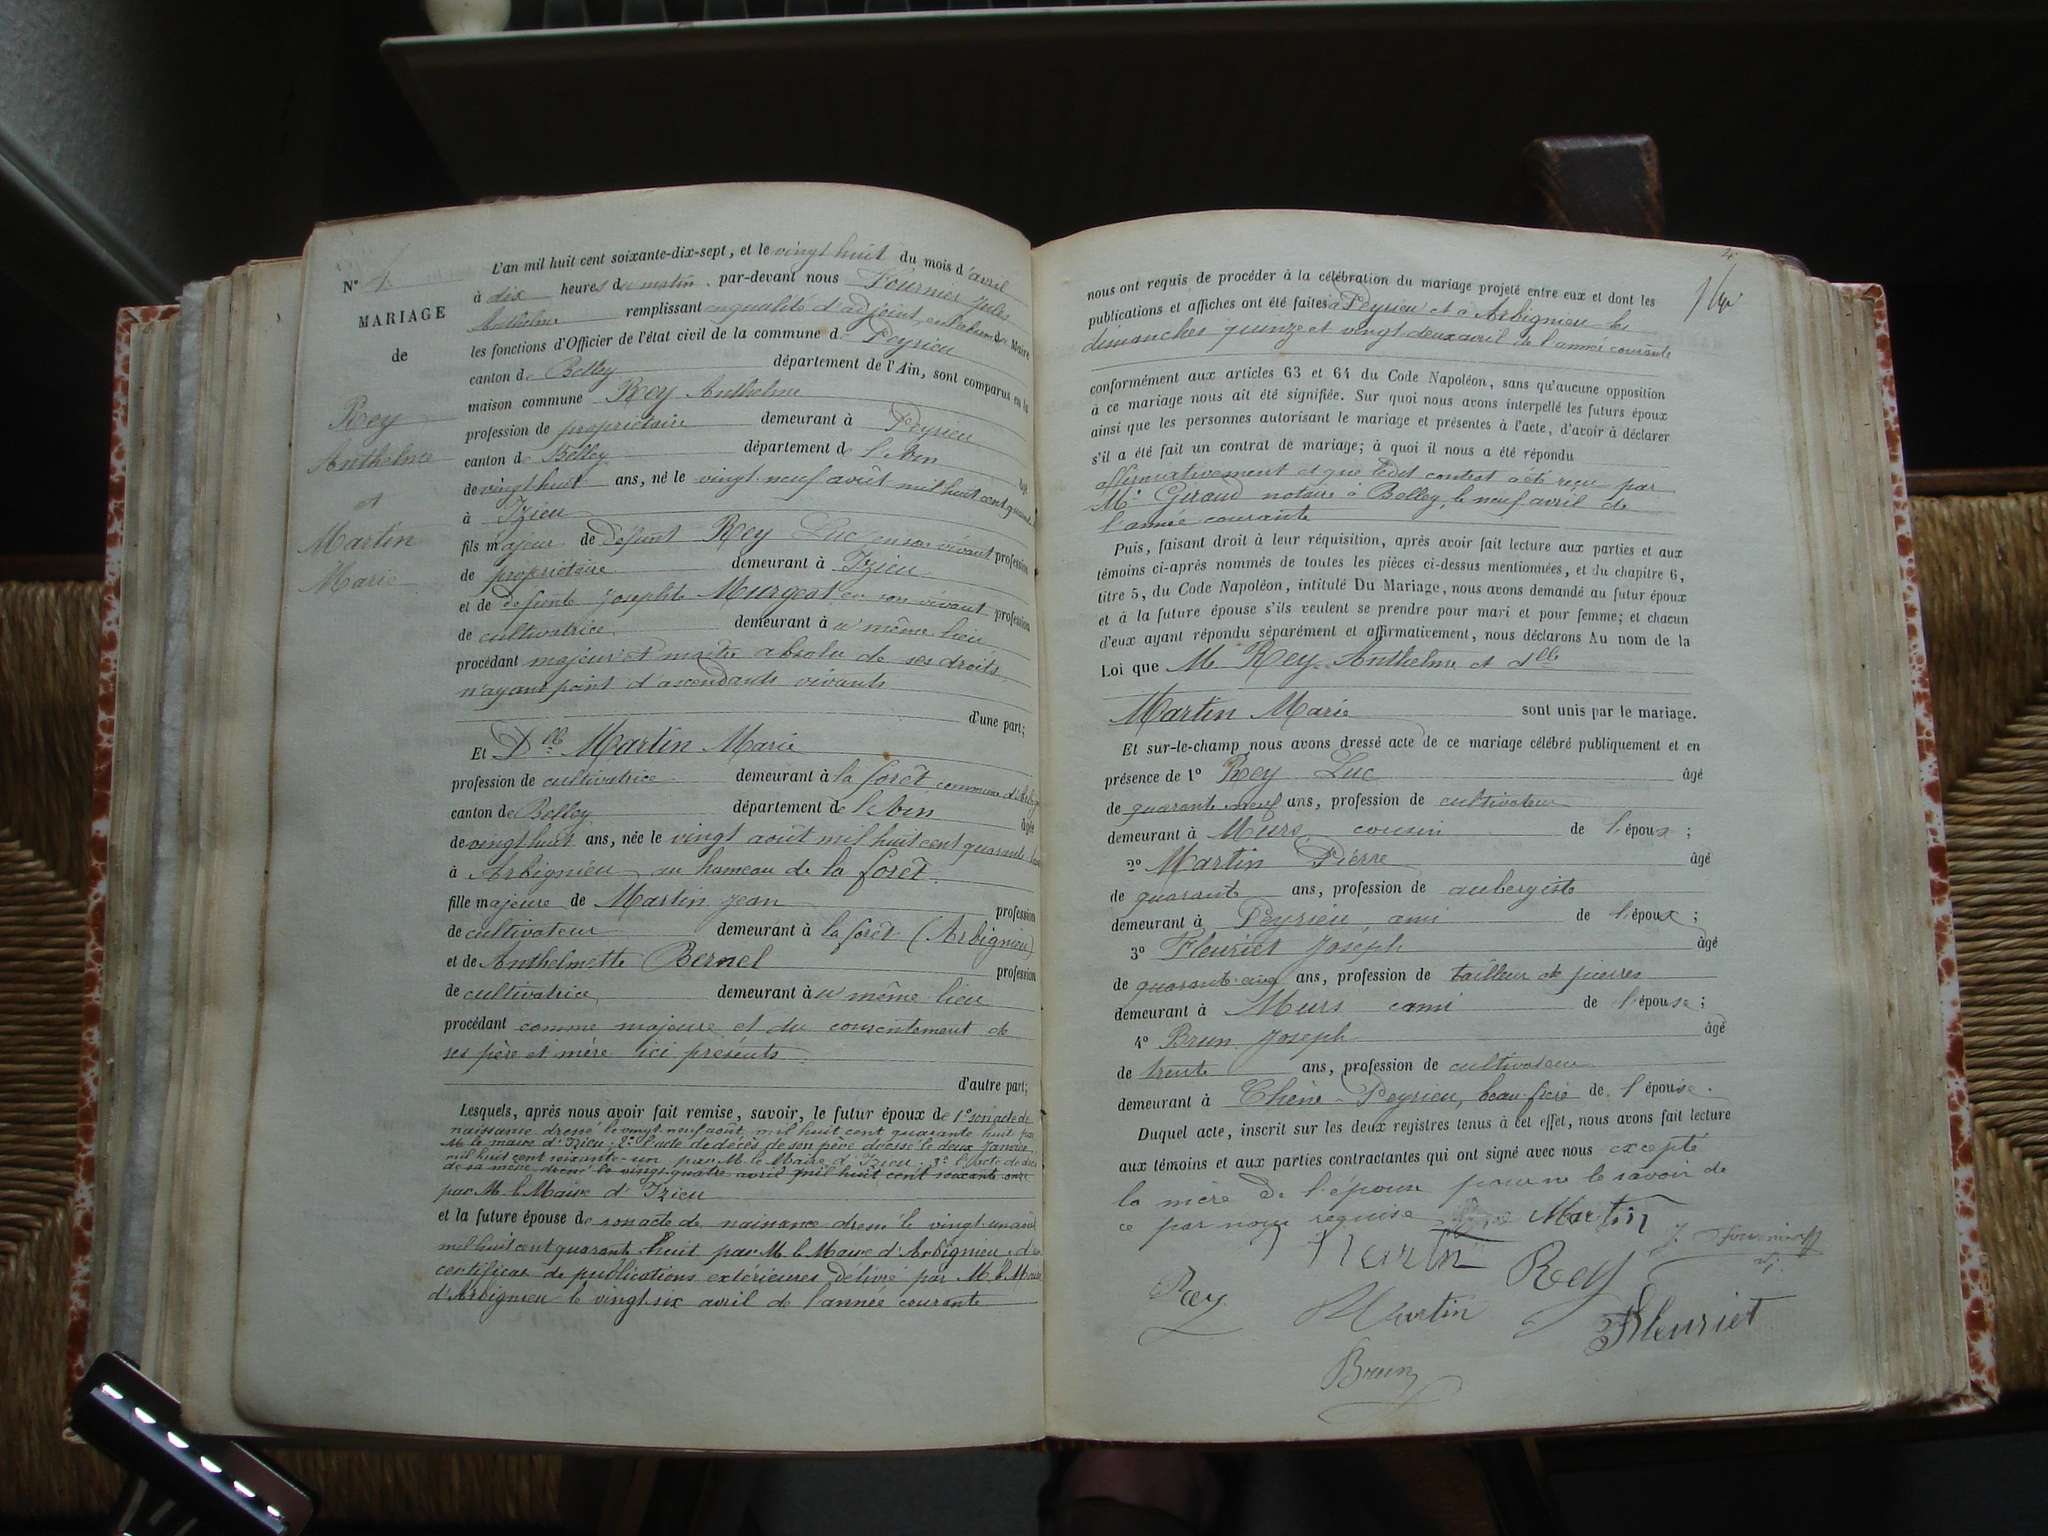 N° 4
MARIAGE
de
Rey
Anthelme
et
Martin
Marie
L'an mil huit cent soixante-dix-sept, et le vingt huit du mois d'avril
à dix heures du matin par-devant nous Fournier Jules
Anthelme remplissant en qualité d'adjoint, Maire
les fonctions d'Officier de l'état civil de la commune de Peyrieu
canton de Belley département de l'Ain, sont comparus en la
maison commune Rey Anthelme
profession de propriétaire demeurant à Peyrieu
canton de Belley département de l'Ain
de vingt huit ans, né le vingt neuf août mil huit cent quarante
à Izieu
fils majeur de défunt Rey Luc en son vivant profession
de propriétaire demeurant à Izieu
et de défunte Josephte Murgeat en son vivant profession
de cultivatrice demeurant à u même lieu
procédant majeur et maître absolu de ses droits
n'ayant point d'ascendants vivants
d'une part;
Et Dlle Martin Marie
profession de cultivatrice demeurant à la forêt commune d'
canton de Belley département de l'Ain
âgée
de vingt huit ans, née le vingt août mil huit cent quarante
à Arbignieu au hameau de la forêt
fille majeure de Martin Jean profession
de cultivateur demeurant à la forêt (Arbignieu)
et de Anthelmette Bernel profession
de cultivatrice demeurant à u même lieu
procédant comme majeure et du consentement de
ses père et mère ici présents
d'autre part;
Lesquels, après nous avoir fait remise, savoir, le futur époux de 1° son acte de
naissance dressé le vingt neuf août mil huit cent quarante huit par
M. le maire d'Izieu; 2° l'acte de décès de son père dressé le deux Janvier
mil huit cent soixante-un par M. le Maire d'Izieu; 3° l'acte de décès
de sa mère dressé le vingt quatre avril mil huit cent soixante onze
par M. le Maire d'Izieu
et la future épouse de son acte de naissance dressé le vingt un août
mil huit cent quarante huit par M. le Maire d'Arbignieu, d'un
certificat de publications extérieures délivré par M. le Maire
d'Arbignieu le vingt six avril de l'année courante
4
nous ont requis de procéder à la célébration du mariage projeté entre eux et dont les
publications et affiches ont été faites à Peyrieu et à Arbignieu les
dimanches quinze et vingt deux avril de l'année courante
conformément aux articles 63 et 64 du Code Napoléon, sans qu'aucune opposition
à ce mariage nous ait été signifiée. Sur quoi nous avons interpellé les futurs époux
ainsi que les personnes autorisant le mariage et présentes à l'acte, d'avoir à déclarer
s'il a été fait un contrat de mariage; à quoi il nous a été répondu
affirmativement et que ledit contrat a été reçu par
Me Giraud notaire à Belley, le neuf avril de
l'année courante
Puis, faisant droit à leur réquisition, après avoir fait lecture aux parties et aux
témoins ci-après nommés de toutes les pièces ci-dessus mentionnées, et du chapitre 6,
titre 5, du Code Napoléon, intitulé Du Mariage, nous avons demandé au futur époux
et à la future épouse s'ils veulent se prendre pour mari et pour femme; et chacun
d'eux ayant répondu séparément et affirmativement, nous déclarons Au nom de la
Loi que M. Rey Anthelme et dlle
Martin Marie sont unis par le mariage.
Et sur-le-champ nous avons dressé acte de ce mariage célébré publiquement et en
présence de 1° Rey Luc âgé
de quarante neuf ans, profession de cultivateur
demeurant à Murs, cousin de l'époux;
2° Martin Pierre âgé
de quarante ans, profession de aubergiste
demeurant à Peyrieu ami de l'époux;
3° Fleuriet Joseph âgé
de quarante cinq ans, profession de tailleur de pierres
demeurant à Murs ami de l'épouse;
4° Brun Joseph âgé
de trente ans, profession de cultivateur
demeurant à Chêne-Peyrieu, beau frère de l'épouse.
Duquel acte, inscrit sur les deux registres tenus à cet effet, nous avons fait lecture
aux témoins et aux parties contractantes qui ont signé avec nous excepté
la mère de l'épouse pour ne le savoir de
ce par nous requise Martin
Martin Rey J. Fournier
Rey Martin Fleuriet
Brun